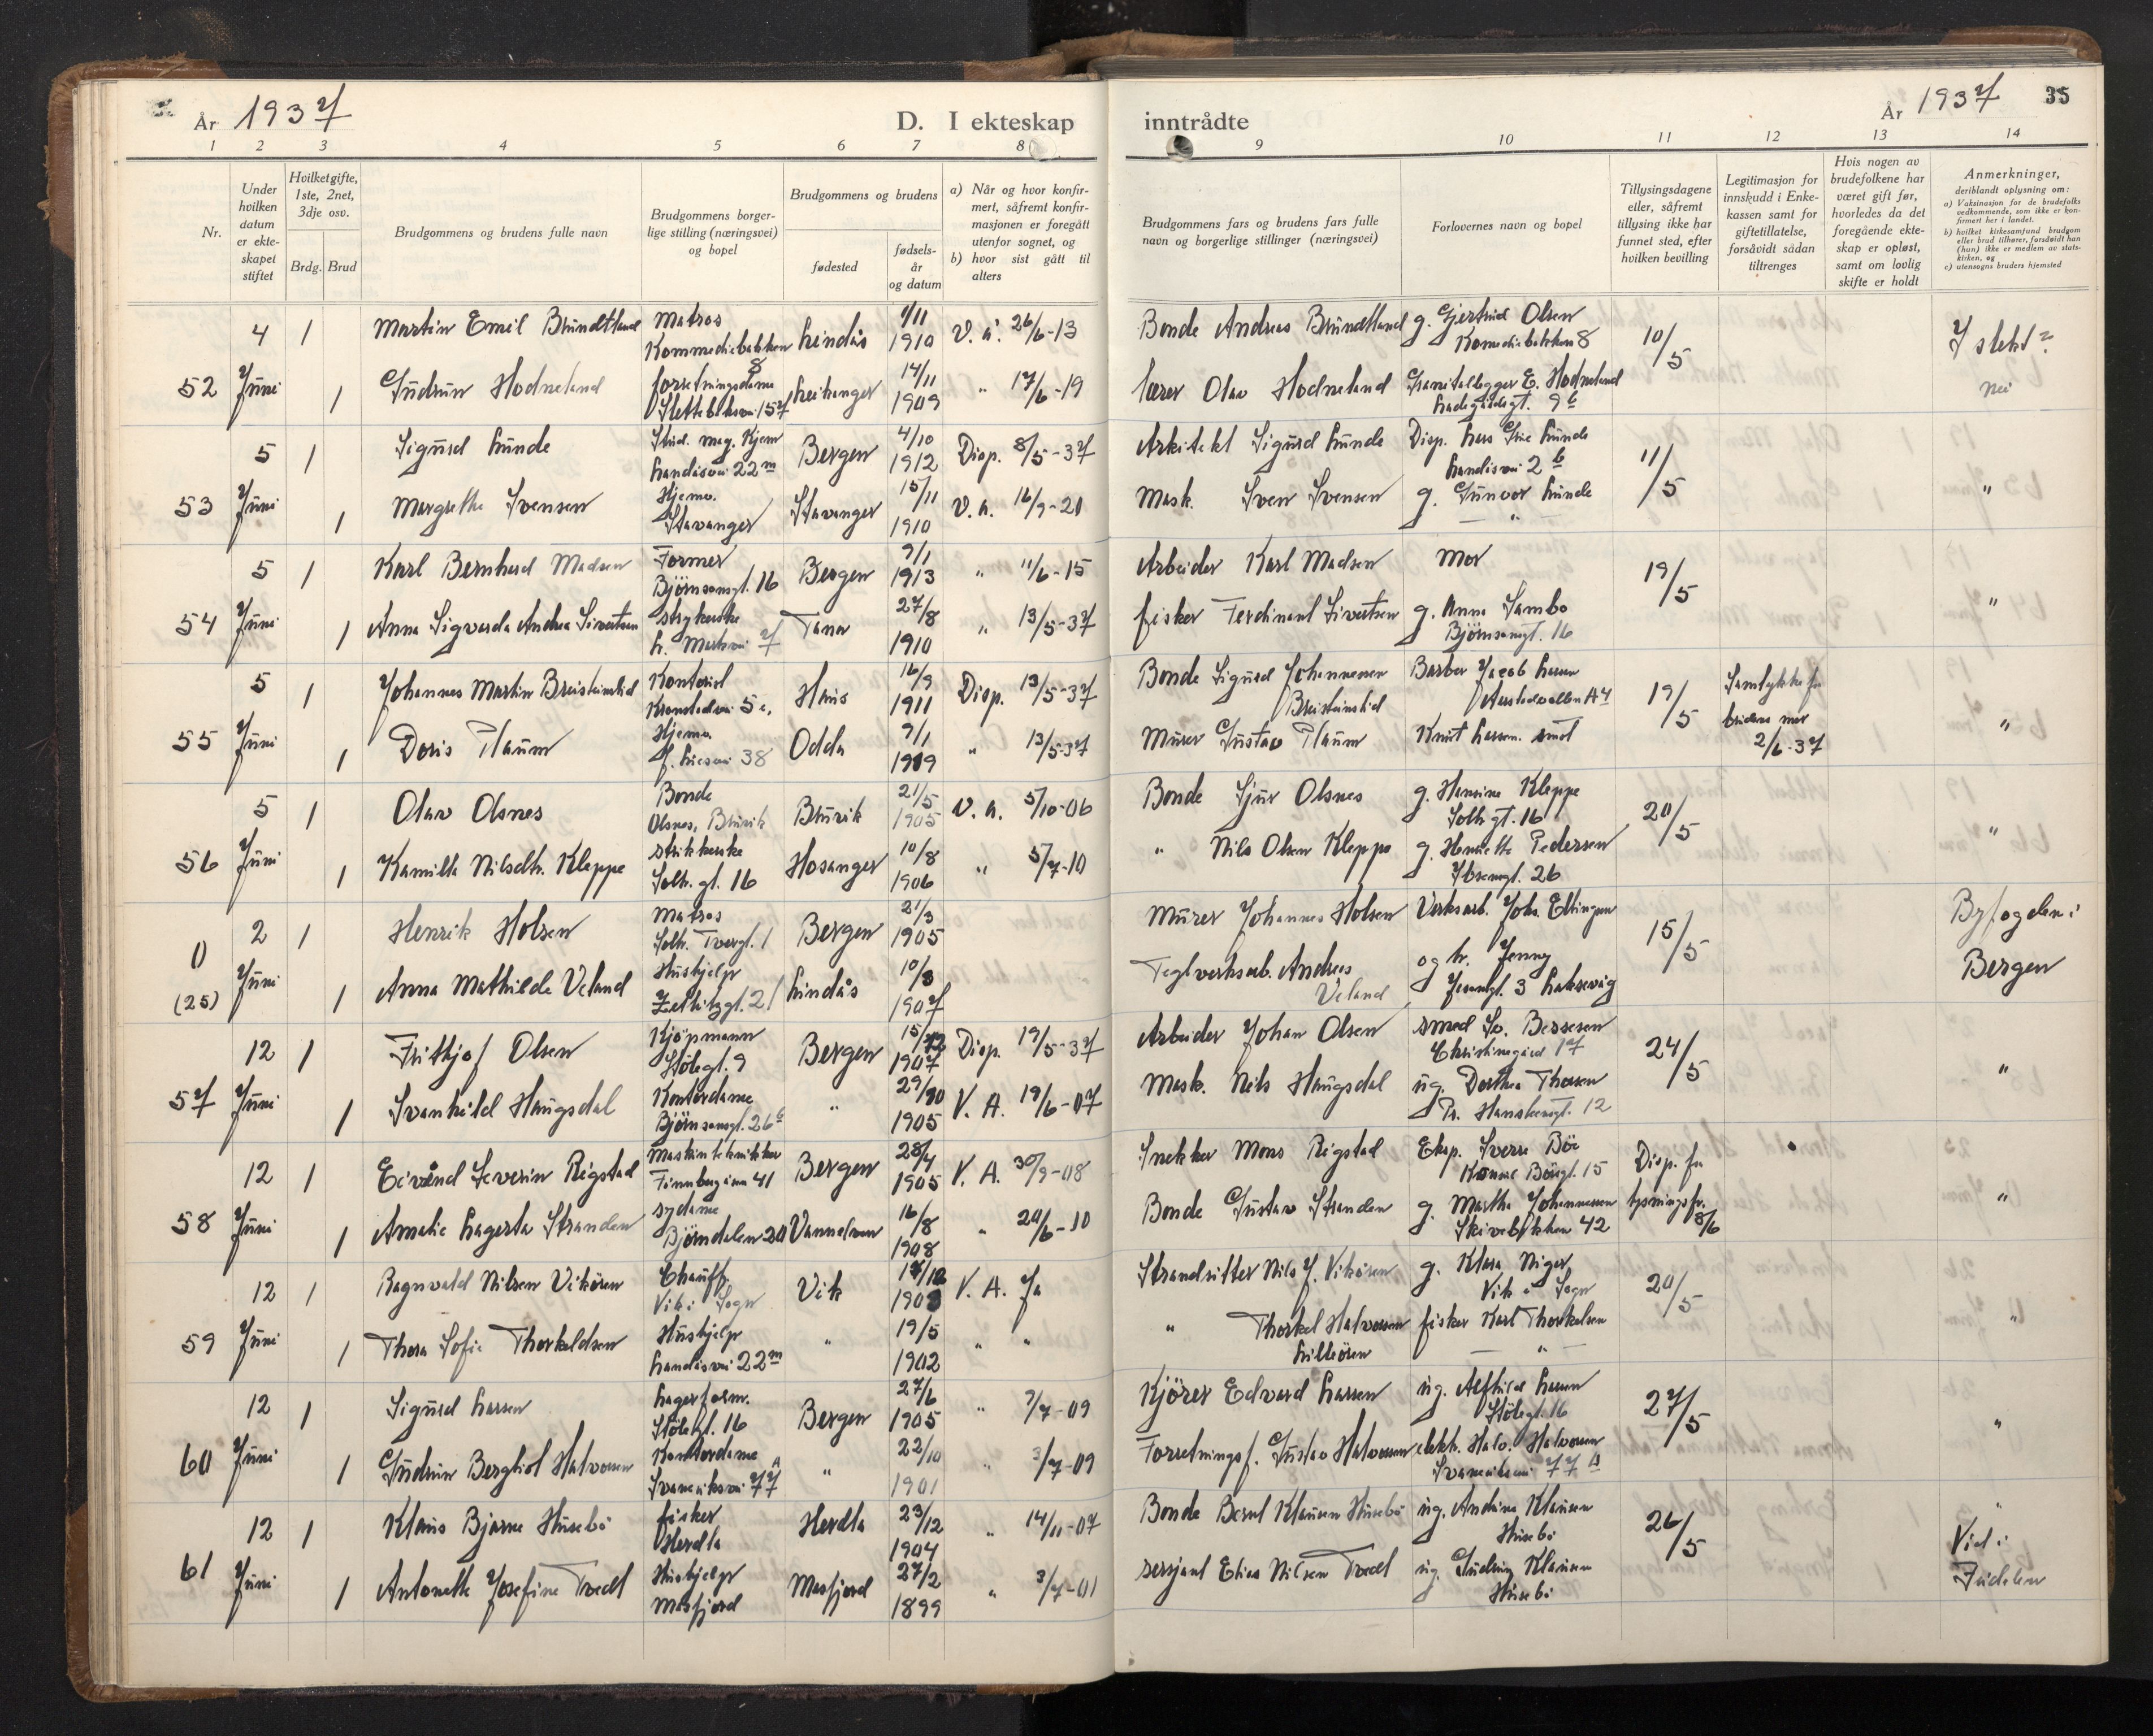 År 1937
D. I ekteskap
inntrådte
År 1937
35
1 2 3 4 5 6 7 8
9 10 11 12 13 14
Nr.
Under
hvilken
datum
er ekte-
skapet
stiftet
Hvilketgifte,
1ste, 2net,
3dje osv.
Brdg. Brud
Brudgommens og brudens fulle navn
Brudgommens borger-
lige stilling (næringsvei)
og bopel
Brudgommens og brudens
fødested
fødsels-
år
og datum
a) Når og hvor konfir-
mert, såfremt konfir-
masjonen er foregått
utenfor sognet, og
b) hvor sist gått til
alters
Brudgommens fars og brudens fars fulle
navn og borgerlige stillinger (næringsvei)
Forlovernes navn og bopel
Tillysingsdagene
eller, såfremt
tillysing ikke har
funnet sted, efter
hvilken bevilling
Legitimasjon for
innskudd i Enke-
kassen samt for
giftetillatelse,
forsåvidt sådan
tiltrenges
Hvis nogen av
brudefolkene har
været gift før,
hvorledes da det
foregående ekte-
skap er opløst,
samt om lovlig
skifte er holdt
Anmerkninger,
deriblandt oplysning om:
a) Vaksinasjon for de brudefolks
vedkommende, som ikke er kon-
firmert her i landet.
b) hvilket kirkesamfund brudgom
eller brud tilhører, forsåvidt han
(hun) ikke er medlem av stats-
kirken, og
c) utensogns bruders hjemsted
52
4 Juni
1 Martin Emil Brundtland
Matros
Kommediebakken 8
Lindås
1/11 1910
V. a. 26/6-13
Bonde Andreas Brundtland
g. Gjertrud Olsen
Komediebakken 8
10/5
I slekt?
nei
1 Gudrun Hodneland
forretningsdame
Leikanger
14/11 1909
" 17/6-19
Lærer Olav Hodneland
E. Hodneland
Ladegårdsgt. 9 b
53
5 Juni
1 Sigurd Lunde
Stud. mag. Hjem
Landåsvei 22 m
Bergen
4/10 1912
Disp. 8/5-37
Arkitekt Sigurd Lunde
Disp. Lunde
Landåsvei 2 b
11/5
"
1 Margrethe Svensen
Hjemv.
Stavanger
Stavanger
15/11 1910
V. a. 16/9-21
Mask. Sven Svensen
g. Gunvor Lunde
— " —
54
5 Juni
1 Karl Bernhard Madsen
Former
Björnsonsgt. 16
Bergen
9/1 1913
" 11/6-15
Arbeider Karl Madsen
Mor
19/5
"
1 Anna Sigvarda Andrea Sivertsen
strykerske
Tana
27/8 1910
" 13/5-37
fisker Ferdinant Sivertsen
g. Anna Sambo
Björnsonsgt. 16
55
5 Juni
1 Johannes Martin Breisteinslid
Kontorist
Kronstadvei 5 c.
Haus
16/9 1911
Disp. 13/5-37
Bonde Sigurd Johannesen
Breisteinslid
Barber Jacob Larsen
19/5
Samtykke fra
brudens mor
2/6-37
"
1 Doris Plaum
Hjemv.
Odda
9/1 1919
" 13/5-37
Murer Gustav Plaum
Knut Larsen
56
5 Juni
1 Olav Olsnes
Bonde
Olsnes, Bruvik
Bruvik
21/5 1905
V. a. 5/10-06
Bonde Sjur Olsnes
g. Hansine Kleppe
Solh. gt. 16
20/5
"
1 Kamilla Nilsdtr. Kleppe
strikkerske
Solh. gt. 16
Hosanger
10/8 1906
" 5/7-10
" Nils Olsen Kleppe
g. Henriette Pedersen
Ibsensgt. 26
0
(25)
2 Juni
1 Henrik Holsen
Matros
Solh. Tvergt. 1
Bergen
21/3 1905
Murer Johannes Holsen
Verksarb. Johs. Eltingen
15/5
Byfogden i
Bergen
1 Anna Mathilde Veland
Hushjelp
Zetlitzgt. 21
Lindås
10/8 1907
Teglverksarb. Andreas
Veland
og fr. Jenny
Jensensgt. 3 Laksevåg
57
12 Juni
1 Frithjof Olsen
Kjöpmann
Stölegt. 9
Bergen
15/12 1907
Disp. 19/5-37
Arbeider Johan Olsen
smed Bessesen
Christinegård 17
24/5
"
1 Svanhild Haugsdal
Kontordame
Björnsonsgt. 26 b
"
29/10 1905
V. A. 19/6-07
Mask. Nils Haugsdal
ug. Dorthea Thorsen
Pr. Hansteensgt. 12
58
12 Juni
1 Eivind Severin Rigstad
Maskintekniker
Finnbergåsen 41
Bergen
28/4 1905
V. A. 30/9-08
Snekker Mons Rigstad
Eksp. Sverre Böe
15
Disp. fra
lysning fr.
8/6
"
1 Amalie Lagerta Stranden
sydame
Björndalen 20
Vannelven
16/8 1908
" 20/6-10
Bonde Gustav Stranden
g. Martha Johannessen
Skivebakken 42
59
12 Juni
1 Ragnvald Nilsen Vikören
Chauff.
Vik i Sogn
Vik
1908
V. A. Ja
Strandsitter Nils J. Vikören
g. Klara Niger
Vik i Sogn
20/5
"
1 Thora Sofie Thorkeldsen
Hushjelp
Landåsvei 22 m
"
19/5 1902
" "
" Thorkel Halvorsen
Lilleören
fisker Karl Thorkelsen
— " —
60
12 Juni
1 Sigurd Larsen
Lagerform.
Stölegt. 16
Bergen
27/6 1905
" 9/7-09
Kjörer Edvard Larsen
ug. Alfhild Larsen
Stölegt. 16
27/5
"
1 Gudrun Bergliot Halvorsen
Kontordame
Svaneviksvei 77 A
"
22/10 1901
" 3/7-09
Forretningsf. Gustav Halvorsen
elektr. Halv. Halvorsen
Svaneviksvei 77 A
61
12 Juni
1 Klaus Bjarne Husebö
fisker
Herdla
Herdla
23/12 1904
" 14/11-07
Bonde Bernt Klausen Husebö
ug. Andrine Klausen
Husebö
26/5
"
Viet i
Fridalen
1 Antonette Josefine Tvedt
Hushjelp
Masfjord
Masfjord
27/2 1899
" 3/7-01
sersjant Elias Nilsen Tvedt
ug. Gudrun Klausen
Husebö